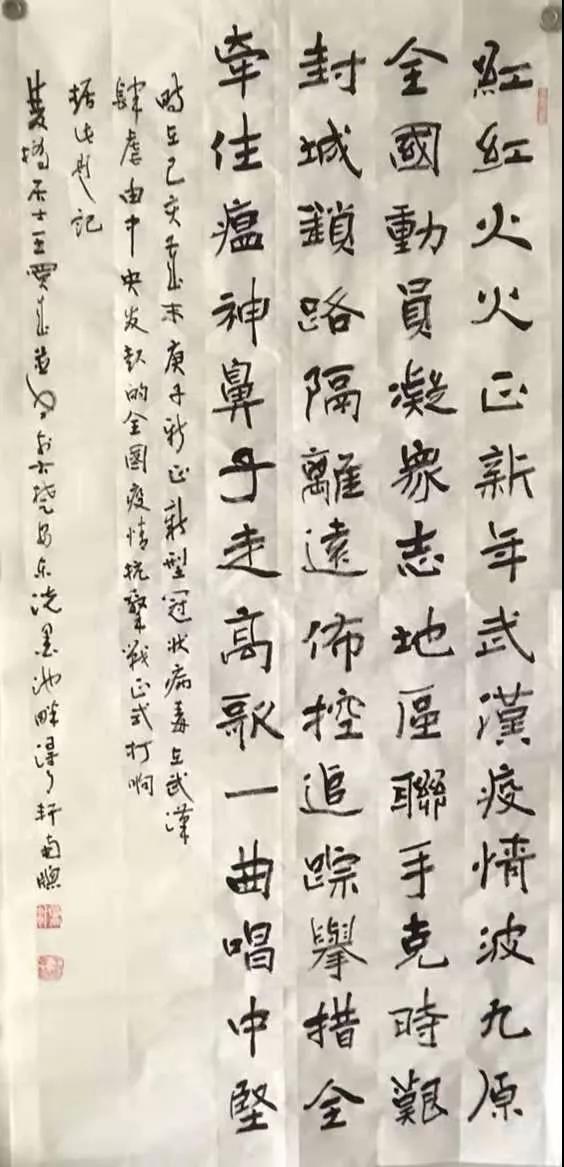 紅紅火火正新年武漢疫情波九原
全國動員凝眾志地區聯手克時艱
封城鎖路隔離遠佈控追踪舉措全
牽住瘟神鼻子走高歌一曲唱中堅
時在己亥歲末庚子新正新型冠狀病毒在武漢
肆虐由中央发起的全國疫情抗擊戰正式打响
据此題記
橋居士王賈歲並書於古